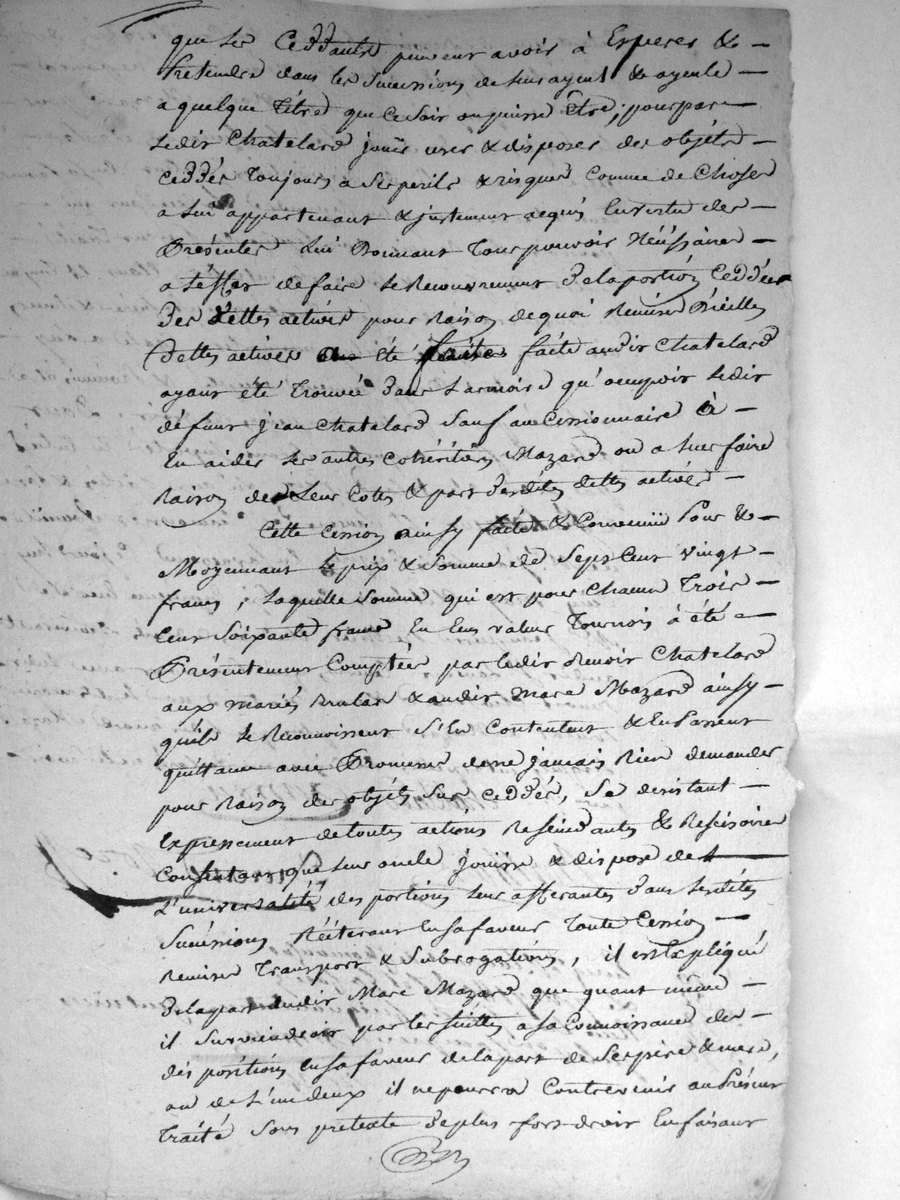 que les Ceddants peuvent avoir à Esperer &
Pretendre dans les Successions de leur ayeul & ayeule
a quelque Titre que ce soit ou puisse Etre; pour par
ledit Chatelard jouir user & disposer des objéts
Ceddés Toujours a ses perils & risques Comme de Choses
a lui appartenant & justement acquis En vertu des
Présentes lui Donnant Tous pouvoir Néssaires
a L'éffet de faire le Recouvrement de la portion Ceddée
Des dettes actives pour Raison de quoi Remise
dettes actives été faite audit Chatelard
ayant été Trouvée Dans L'armoire qu'occupoit ledit
défunt jean Chatelard Sauf au Cessionnaire à
En aider les autres Cohéritiers Mazard ou a leur faire
Raison de Leur Cotes & part Desdites dettes actives
Cette Cession ainsy faite & Convenüe Pour &
Moyennant Le prix & Somme de Sept Cent vingt
francs, Laquelle Somme qui est pour Chacun Trois
Cent Soixante francs En leur valeur Tournois à été
Présentement Comptée par ledit Benoit Chatelard
aux mariés & audit Marc Mazard ainsy
qu'ils le Reconnoissent s'En Contentent & En Passent
quittance avec Promesse de ne jamais Rien demander
pour Raison des objéts Sus Ceddés, Se desistant
Expressement de toutes actions Rescindantes & Rescisoires
Consentant que leur oncle jouisse & dispose de
L'universalité des portions leur afferantes Dans lesdites
Successions Réiterant En sa faveur Toute Cession
Remise Transport & Subrogation, il est Expliqué
De la part dudit Marc Mazard que quant même
il Surviendroit par les Suittes a sa Connoissance des
dispositions En sa faveur de la part de Ses pere & mere,
ou de L'un deux il ne pourra Contrevenir au Présent
Traité Sous pretexte De plus fort droit En faisant